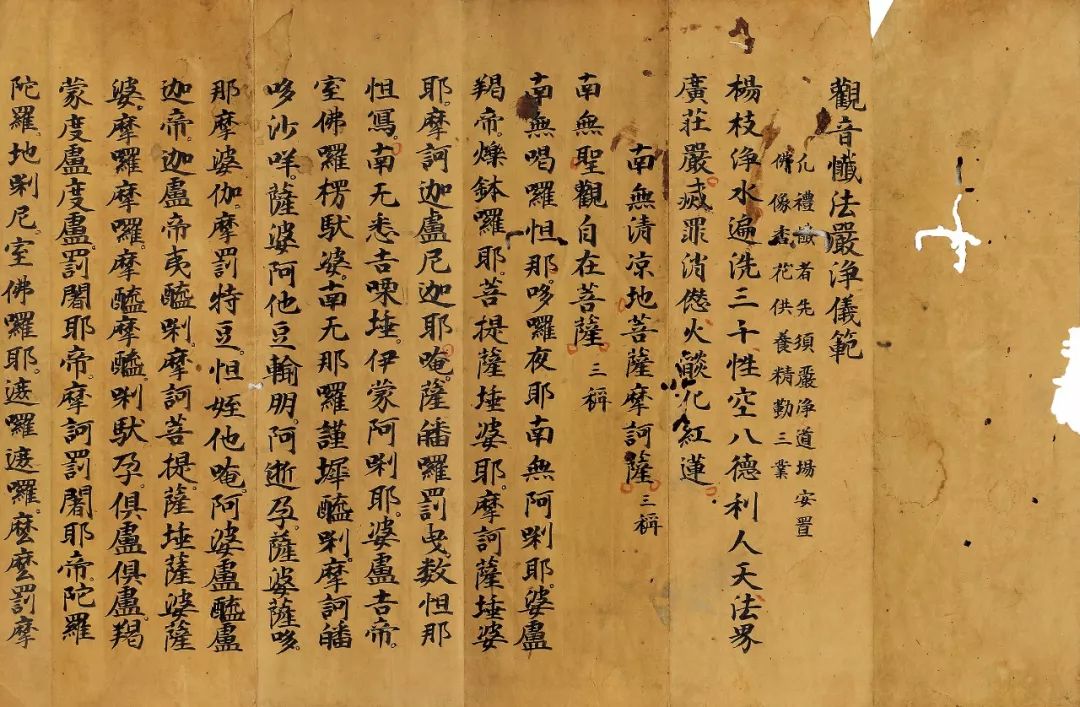 觀音懺法嚴淨儀範
凡禮懺者先須嚴淨道場安置
像香花供養精勤三業
楊枝淨水遍洗三千性空八德利人天法界
廣莊嚴滅罪消愆火燄化紅蓮
南無清凉地菩薩摩訶薩三稱
南無聖觀自在菩薩三稱
南無喝囉怛那哆囉夜耶南無阿唎耶婆盧
羯帝爍鉢囉耶菩提薩埵婆耶摩訶薩埵婆
耶摩訶迦盧尼迦耶唵薩皤囉罰曳数怛那
怛寫南无悉吉㗚埵伊蒙阿唎耶婆盧吉帝
室佛囉楞馱婆南无那囉謹墀醯唎摩訶皤
哆沙咩薩婆阿他豆輸朋阿逝孕薩婆薩哆
那摩婆伽摩罰特豆怛姪他唵阿婆盧醯盧
迦帝迦盧帝夷醯唎摩訶菩提薩埵薩婆薩
婆摩囉摩囉摩醯摩醯唎馱孕俱盧俱盧羯
蒙度盧度盧罰闍耶帝摩訶罰闍耶帝陀羅
陀羅地唎尼室佛囉耶遮囉遮囉麼麼罰摩